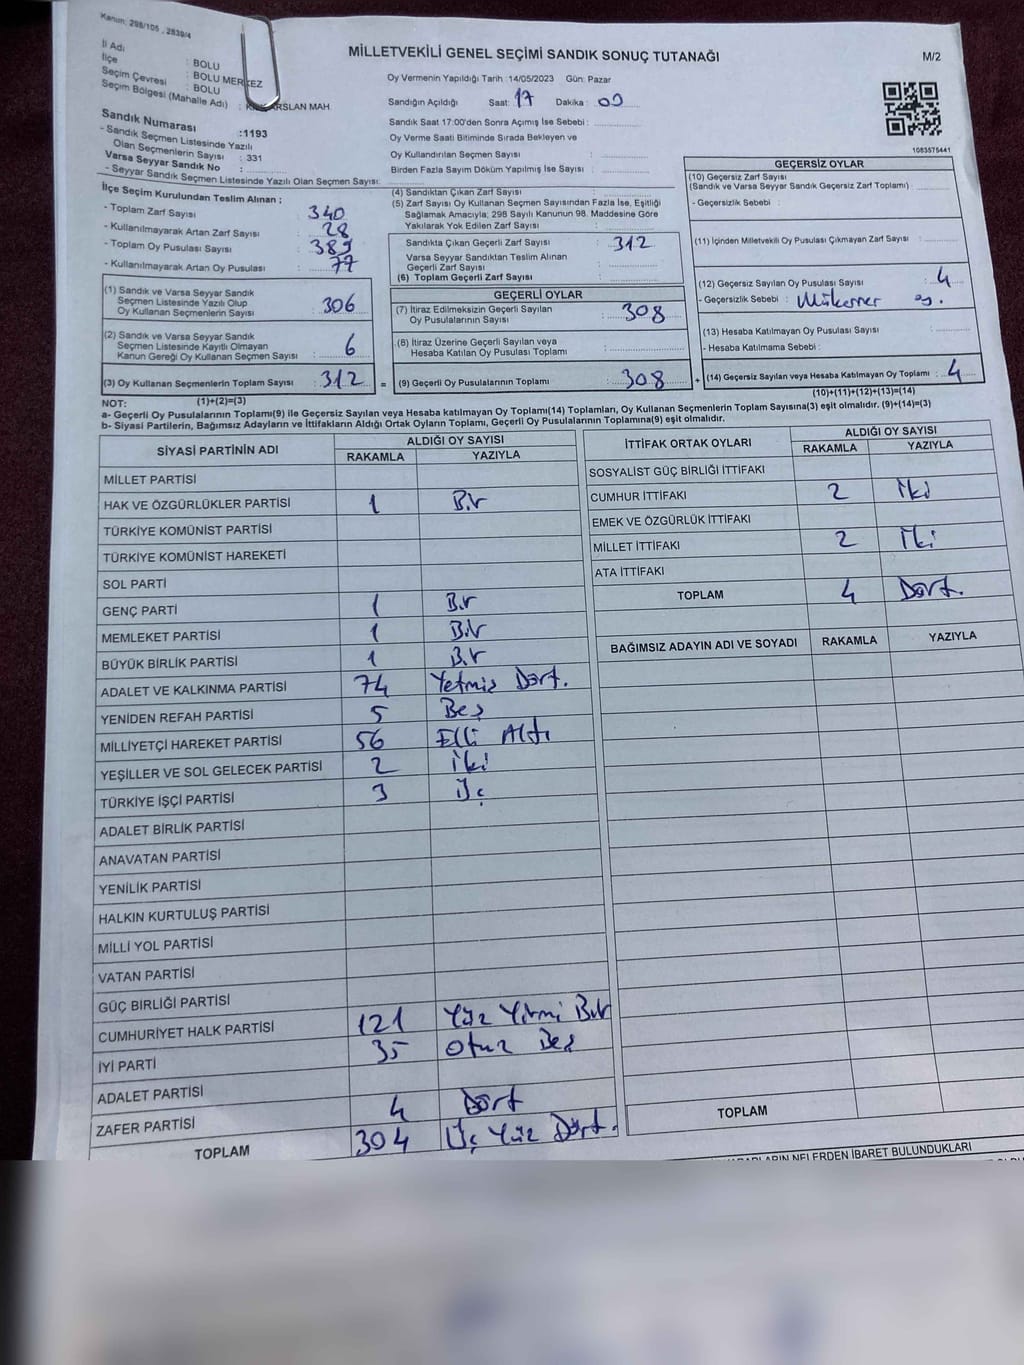 Kanun: 298/105 , 2839/4
MİLLETVEKİLİ GENEL SEÇİMİ SANDIK SONUÇ TUTANAĞI
M/2
İl Adı : BOLU
İlçe : BOLU MERKEZ
Seçim Çevresi : BOLU
Seçim Bölgesi (Mahalle Adı) : ARSLAN MAH.
Sandık Numarası :1193
- Sandık Seçmen Listesinde Yazılı
Olan Seçmenlerin Sayısı : 331
Varsa Seyyar Sandık No :
- Seyyar Sandık Seçmen Listesinde Yazılı Olan Seçmen Sayısı:
Oy Vermenin Yapıldığı Tarih :14/05/2023 Gün: Pazar
Sandığın Açıldığı Saat: 17 Dakika : 00
Sandık Saat 17:00'den Sonra Açımış İse Sebebi :
Oy Verme Saati Bitiminde Sırada Bekleyen ve
Oy Kullandırılan Seçmen Sayısı :
Birden Fazla Sayım Döküm Yapılmış İse Sayısı :
1083575441
İlçe Seçim Kurulundan Teslim Alınan ;
- Toplam Zarf Sayısı : 340
- Kullanılmayarak Artan Zarf Sayısı : 28
- Toplam Oy Pusulası Sayısı : 389
- Kullanılmayarak Artan Oy Pusulası : 77
(1) Sandık ve Varsa Seyyar Sandık
Seçmen Listesinde Yazılı Olup
Oy Kullanan Seçmenlerin Sayısı : 306
(2) Sandık ve Varsa Seyyar Sandık
Seçmen Listesinde Kayıtlı Olmayan
Kanun Gereği Oy Kullanan Seçmen Sayısı : 6
(3) Oy Kullanan Seçmenlerin Toplam Sayısı : 312 =
(1)+(2)=(3)
(4) Sandıktan Çıkan Zarf Sayısı :
(5) Zarf Sayısı Oy Kullanan Seçmen Sayısından Fazla İse, Eşitliği
Sağlamak Amacıyla; 298 Sayılı Kanunun 98. Maddesine Göre
Yakılarak Yok Edilen Zarf Sayısı :
Sandıkta Çıkan Geçerli Zarf Sayısı : 312
Varsa Seyyar Sandıktan Teslim Alınan
Geçerli Zarf Sayısı :
(6) Toplam Geçerli Zarf Sayısı :
GEÇERLİ OYLAR
(7) İtiraz Edilmeksizin Geçerli Sayılan
Oy Pusulalarının Sayısı : 308
(8) İtiraz Üzerine Geçerli Sayılan veya
Hesaba Katılan Oy Pusulası Toplamı :
(9) Geçerli Oy Pusulalarının Toplamı : 308 +
GEÇERSİZ OYLAR
(10) Geçersiz Zarf Sayısı
(Sandık ve Varsa Seyyar Sandık Geçersiz Zarf Toplamı) :
- Geçersizlik Sebebi :
(11) İçinden Milletvekili Oy Pusulası Çıkmayan Zarf Sayısı :
(12) Geçersiz Sayılan Oy Pusulası Sayısı : 4
- Geçersizlik Sebebi :
(13) Hesaba Katılmayan Oy Pusulası Sayısı :
- Hesaba Katılmama Sebebi :
(14) Geçersiz Sayılan veya Hesaba Katılmayan Oy Toplamı : 4
(10)+(11)+(12)+(13)=(14)
NOT:
a- Geçerli Oy Pusulalarının Toplamı(9) ile Geçersiz Sayılan veya Hesaba katılmayan Oy Toplamı(14) Toplamları, Oy Kullanan Seçmenlerin Toplam Sayısına(3) eşit olmalıdır. (9)+(14)=(3)
b- Siyasi Partilerin, Bağımsız Adayların ve İttifakların Aldığı Ortak Oyların Toplamı, Geçerli Oy Pusulalarının Toplamına(9) eşit olmalıdır.
SİYASİ PARTİNİN ADI ALDIĞI OY SAYISI
RAKAMLA YAZIYLA
MİLLET PARTİSİ
HAK VE ÖZGÜRLÜKLER PARTİSİ 1 Bir
TÜRKİYE KOMÜNİST PARTİSİ
TÜRKİYE KOMÜNİST HAREKETİ
SOL PARTİ
GENÇ PARTİ 1 Bir
MEMLEKET PARTİSİ 1 Bir
BÜYÜK BİRLİK PARTİSİ 1 Bir
ADALET VE KALKINMA PARTİSİ 74 Yetmiş Dört.
YENİDEN REFAH PARTİSİ 5 Beş
MİLLİYETÇİ HAREKET PARTİSİ 56 Elli Altı
YEŞİLLER VE SOL GELECEK PARTİSİ 2 İki
TÜRKİYE İŞÇİ PARTİSİ 3 Üç
ADALET BİRLİK PARTİSİ
ANAVATAN PARTİSİ
YENİLİK PARTİSİ
HALKIN KURTULUŞ PARTİSİ
MİLLİ YOL PARTİSİ
VATAN PARTİSİ
GÜÇ BİRLİĞİ PARTİSİ
CUMHURİYET HALK PARTİSİ 121 Yüz Yirmi Bir
İYİ PARTİ 35 Otuz Beş
ADALET PARTİSİ
ZAFER PARTİSİ 4 Dört
TOPLAM 304 Üç Yüz Dört.
İTTİFAK ORTAK OYLARI ALDIĞI OY SAYISI
RAKAMLA YAZIYLA
SOSYALİST GÜÇ BİRLİĞİ İTTİFAKI
CUMHUR İTTİFAKI 2 İki
EMEK VE ÖZGÜRLÜK İTTİFAKI
MİLLET İTTİFAKI 2 İki
ATA İTTİFAKI
TOPLAM 4 Dört.
BAĞIMSIZ ADAYIN ADI VE SOYADI RAKAMLA YAZIYLA
TOPLAM
NELERDEN İBARET BULUNDUKLARI